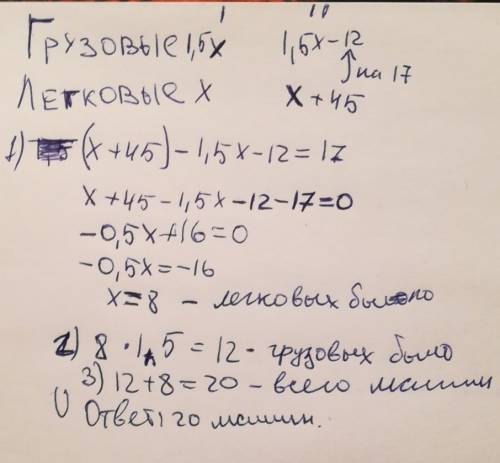 I II
Грузовые 1,5x 1,5x-12
на 17
Легковые x x+45
1) (x+45)-1,5x-12=17
x+45-1,5x-12-17=0
-0,5x+16=0
-0,5x=-16
x=8 - легковых было
2) 8·1,5=12- грузовых было
3) 12+8=20-всего машин
Ответ: 20 машин.